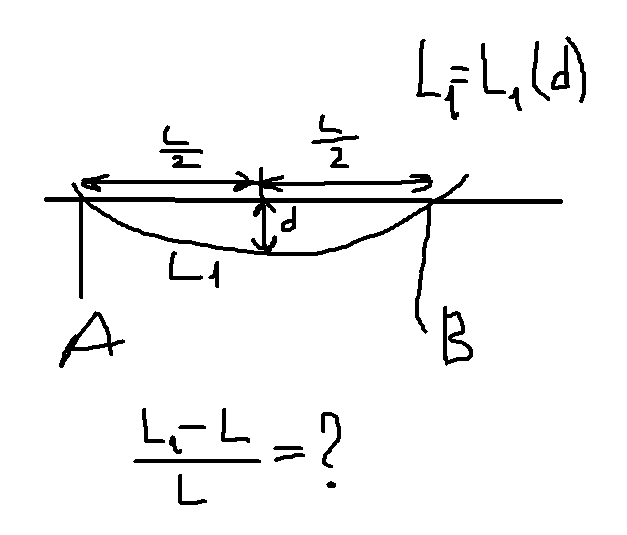 L₁=L₁(d)
L/2 L/2
d
L₁
A B
(L₁-L)/L=?